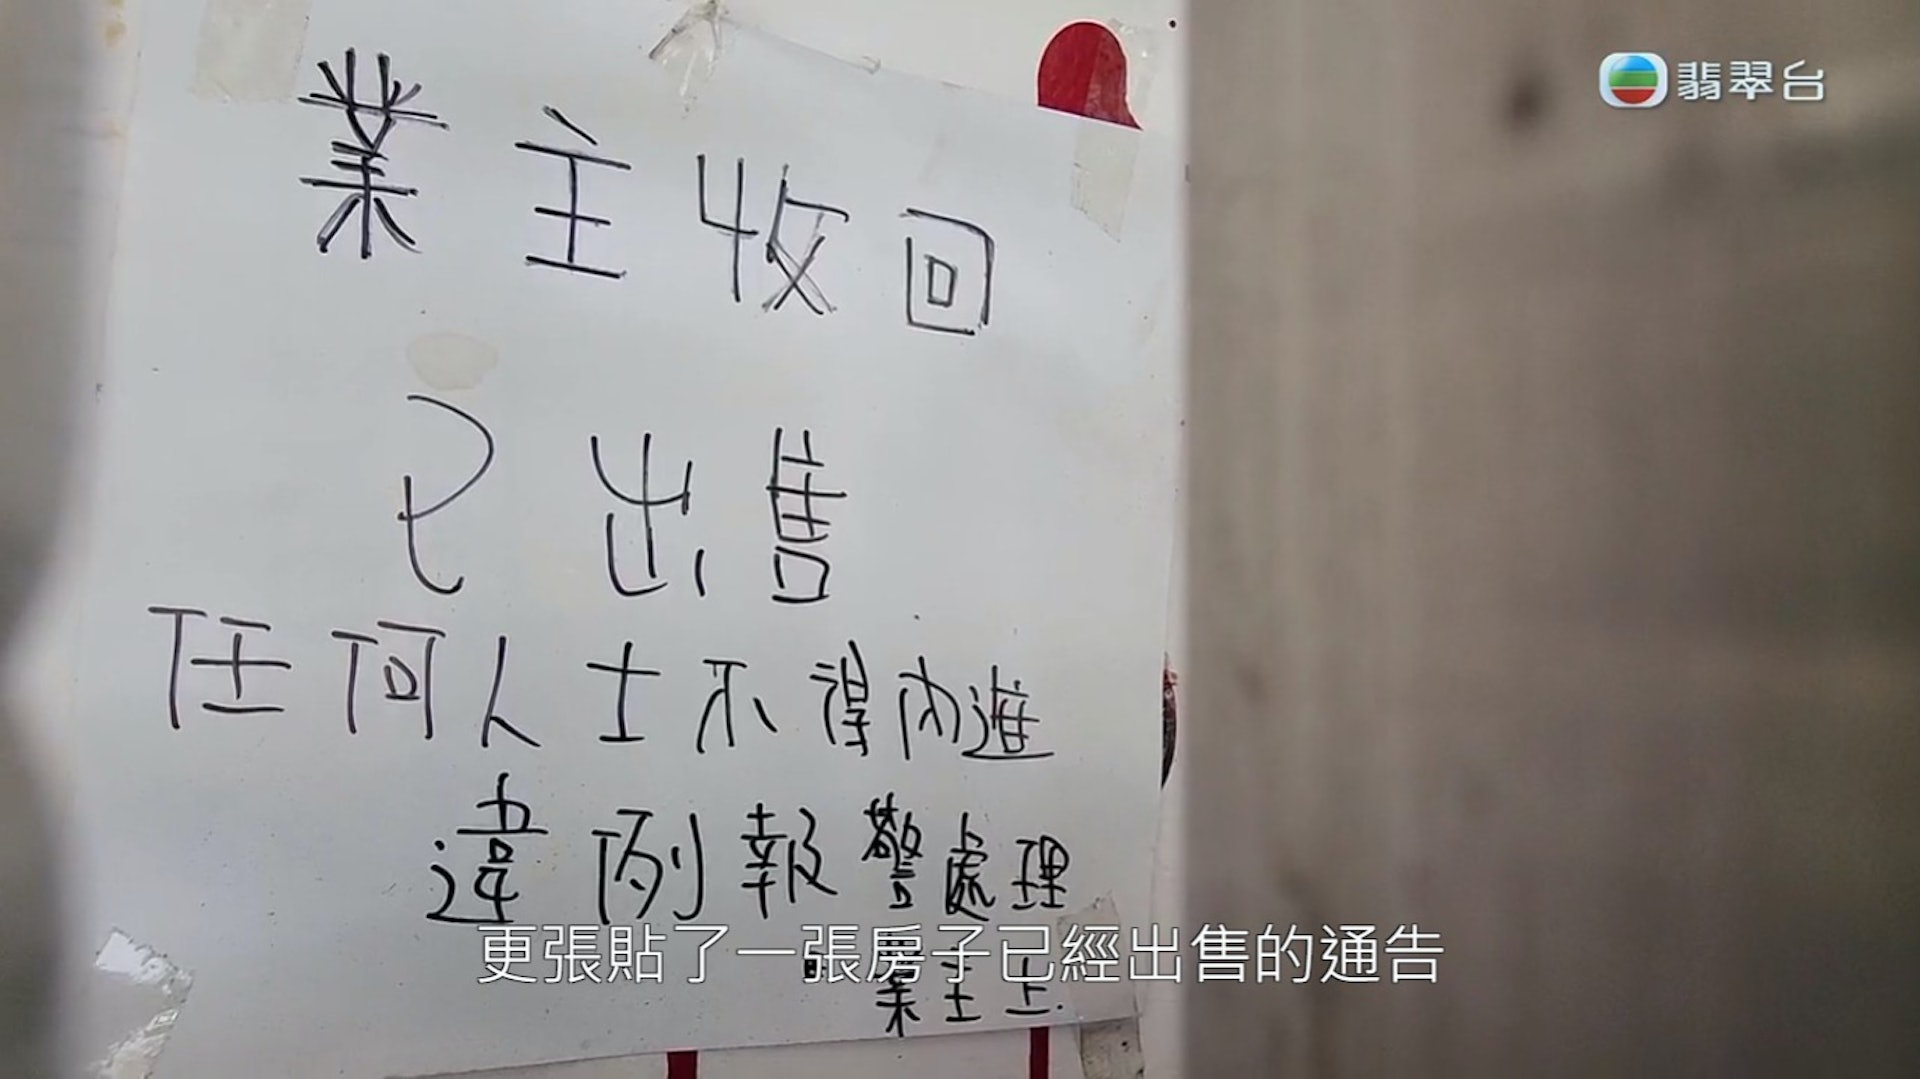 翡翠台
業主收回
已出售
任何人士不得內進
違例報警處理
業主上
更張貼了一張房子已經出售的通告